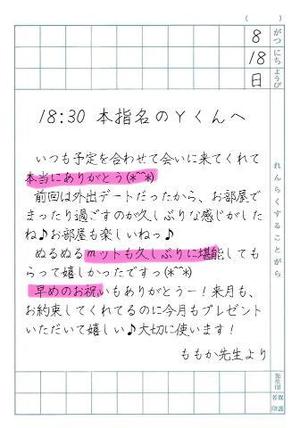 ( )
8
がつ
18
にち
日
ようび
18:30 本指名のYくんへ
いつも予定を合わせて会いに来てくれて
本当にありがとう(*^^*)
前回は外出デートだったから、お部屋で
まったり過ごすのが久しぶりな感じがした
ね♪お部屋も楽しいねっ♪
ぬるぬるmットも久しぶりに堪能しても
らって嬉しかったですっ(*^^*)
早めのお祝いもありがとうー！来月も、
お約束してくれてるのに今月もプレゼント
いただいて嬉しい♪大切に使います！
ももか先生より
れんらくすることがら